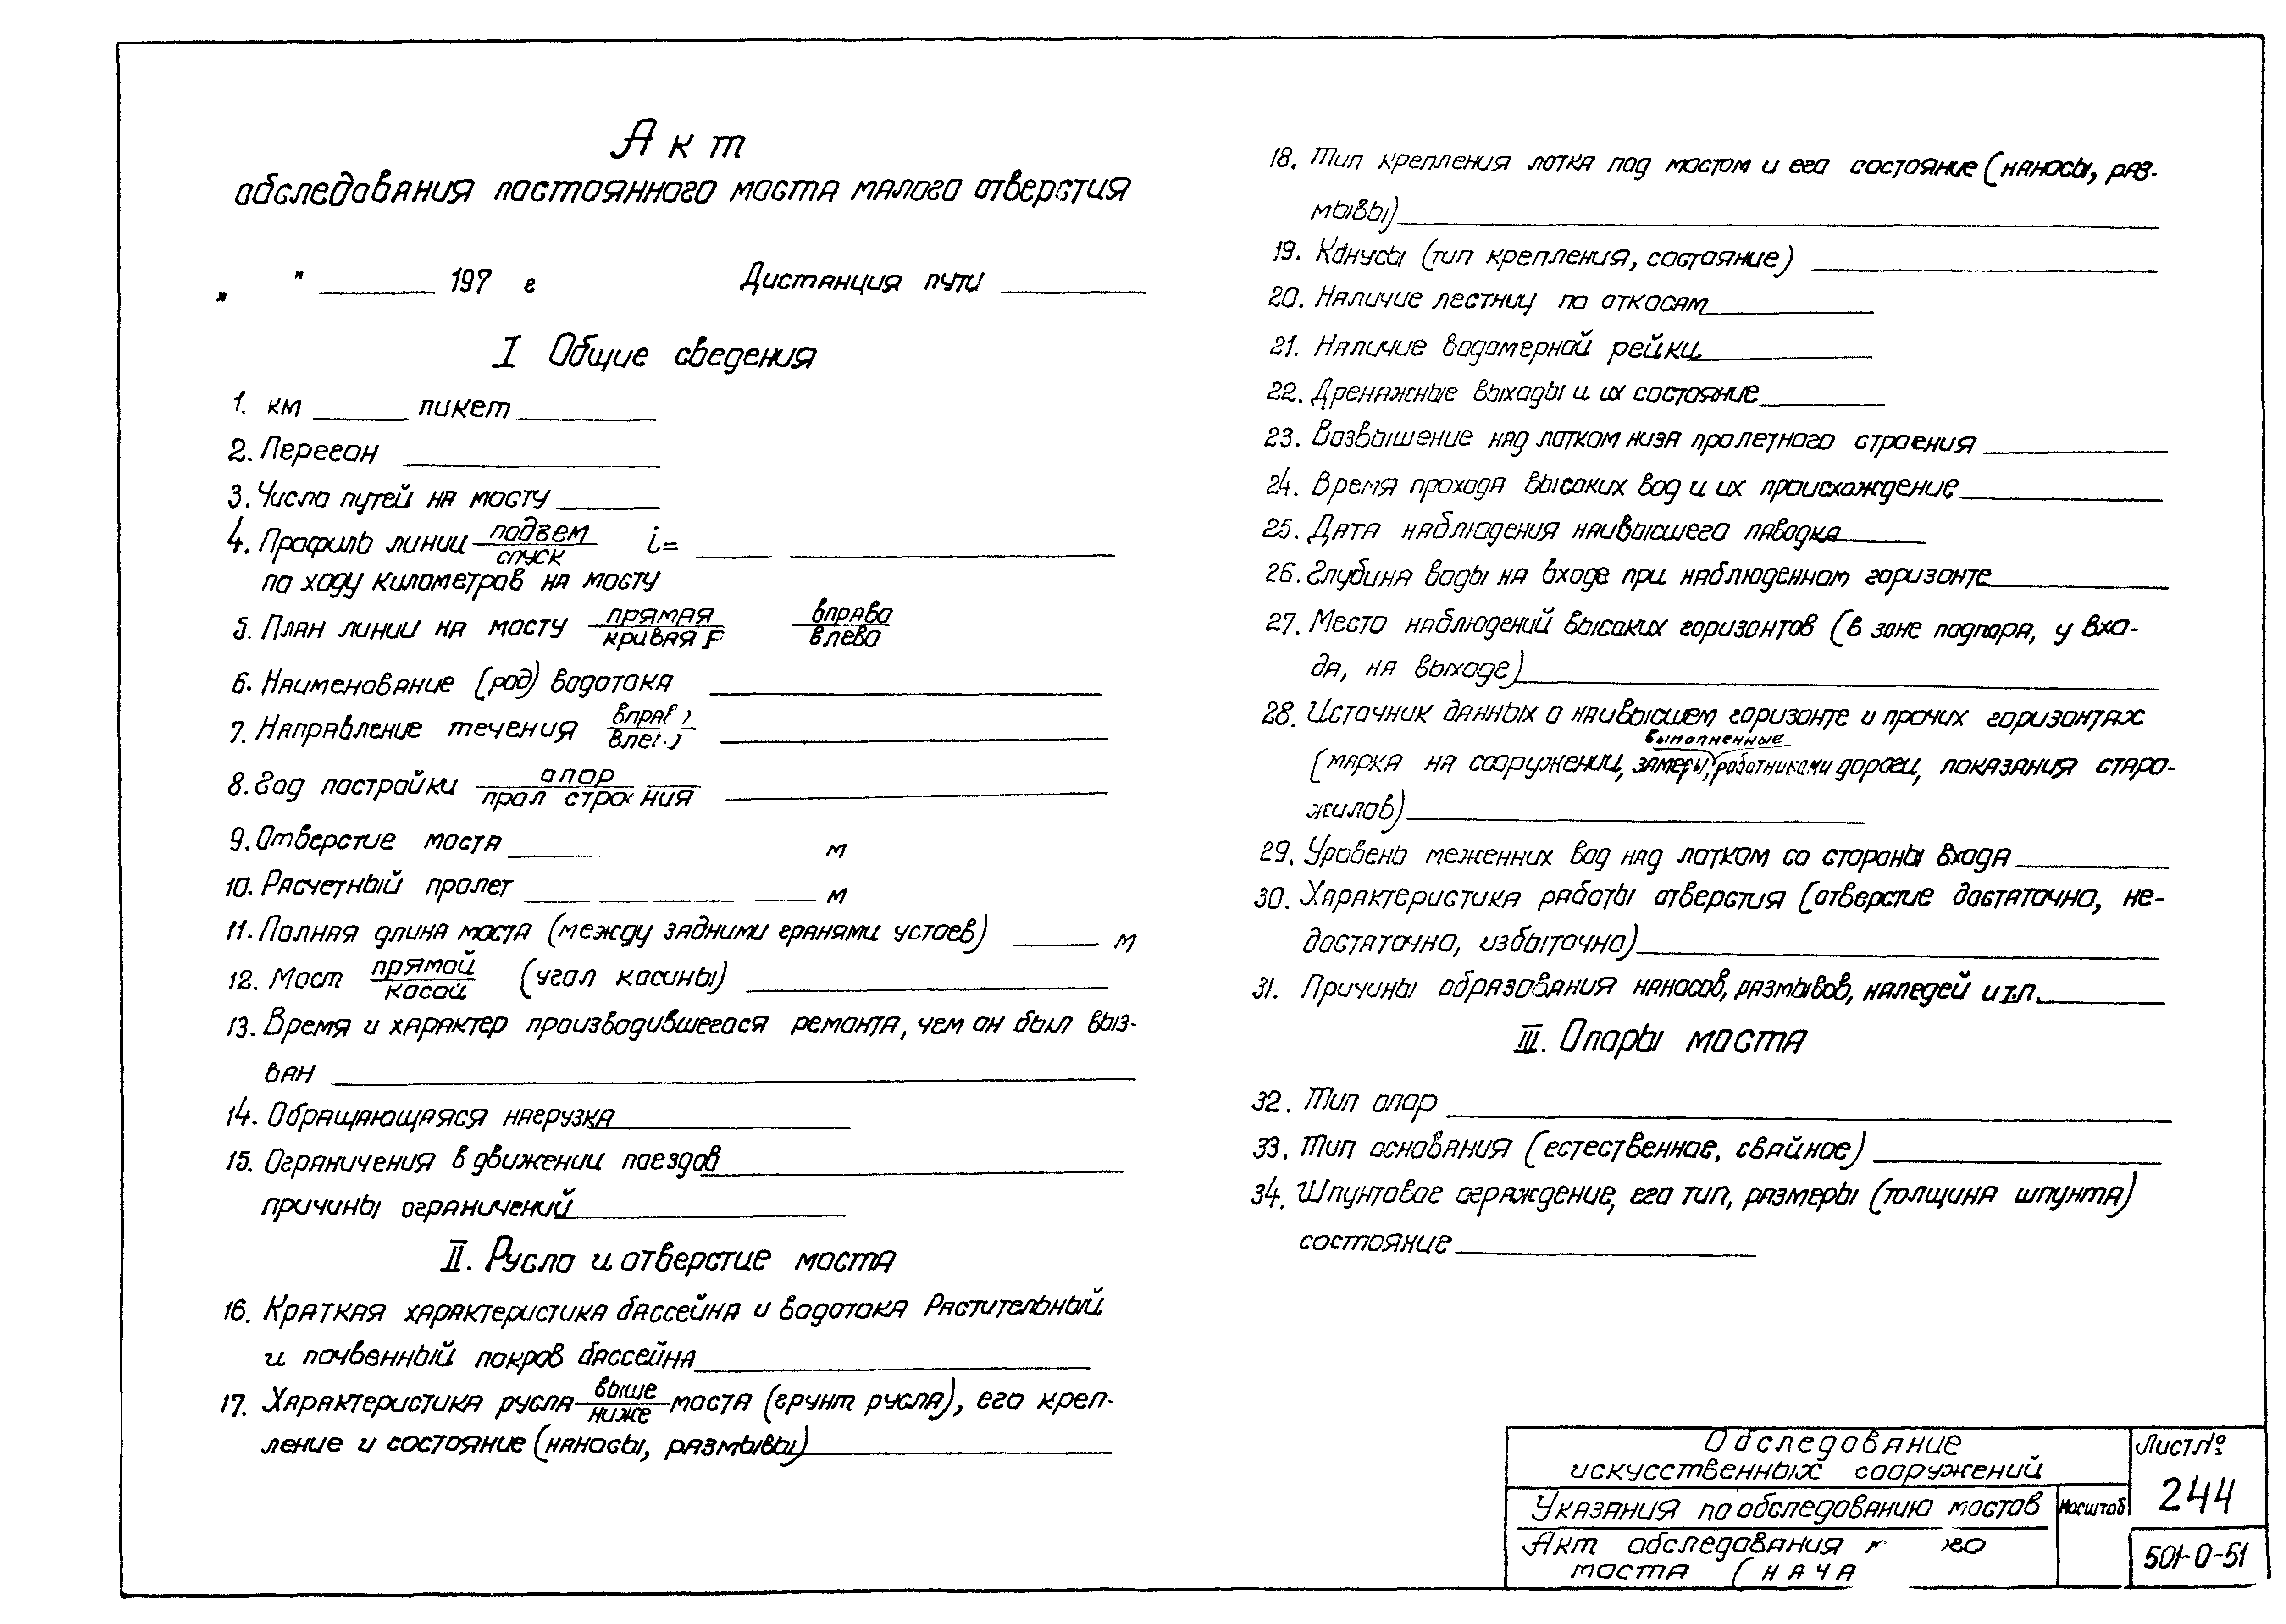 Акт
обследования постоянного моста малого отверстия
„ " ______ 197 г Дистанция пути ______
I Общие сведения
1. км ______ пикет ______
2. Перегон ______
3. Число путей на мосту ______
4. Профиль линии подъем/спуск i= ______
по ходу километров на мосту
5. План линии на мосту прямая/кривая R вправо/влево
6. Наименование (род) водотока ______
7. Направление течения вправо/влево ______
8. Год постройки опор/прол строения ______
9. Отверстие моста ______ м
10. Расчетный пролет ______ м
11. Полная длина моста (между задними гранями устоев) ______ м
12. Мост прямой/косой (угол косины) ______
13. Время и характер производившегося ремонта, чем он был выз-
ван ______
14. Обращающаяся нагрузка ______
15. Ограничения в движении поездов ______
причины ограничений ______
II. Русло и отверстие моста
16. Краткая характеристика бассейна и водотока Растительный
и почвенный покров бассейна ______
17. Характеристика русла выше/ниже моста (грунт русла), его креп-
ление и состояние (наносы, размывы) ______
18. Тип крепления лотка под мостом и его состояние (наносы, раз-
мывы) ______
19. Конусы (тип крепления, состояние) ______
20. Наличие лестниц по откосам ______
21. Наличие водомерной рейки ______
22. Дренажные выходы и их состояние ______
23. Возвышение над лотком низа пролетного строения ______
24. Время прохода высоких вод и их происхождение ______
25. Дата наблюдения наивысшего паводка ______
26. Глубина воды на входе при наблюденном горизонте ______
27. Место наблюдений высоких горизонтов (в зоне подпора, у вхо-
да, на выходе) ______
28. Источник данных о наивысшем горизонте и прочих горизонтах
выполненные
(марка на сооружении, замеры, работниками дороги, показания старо-
жилов) ______
29. Уровень меженних вод над лотком со стороны входа ______
30. Характеристика работы отверстия (отверстие достаточно, не-
достаточно, избыточно) ______
31. Причины образования наносов, размывов, наледей и т.п. ______
III. Опоры моста
32. Тип опор ______
33. Тип основания (естественное, свайное) ______
34. Шпунтовое ограждение, его тип, размеры (толщина шпунта)
состояние ______
Обследование
искусственных сооружений
Лист №
244
Указания по обследованию мостов
Масштаб
Акт обследования
моста (нача
501-0-51